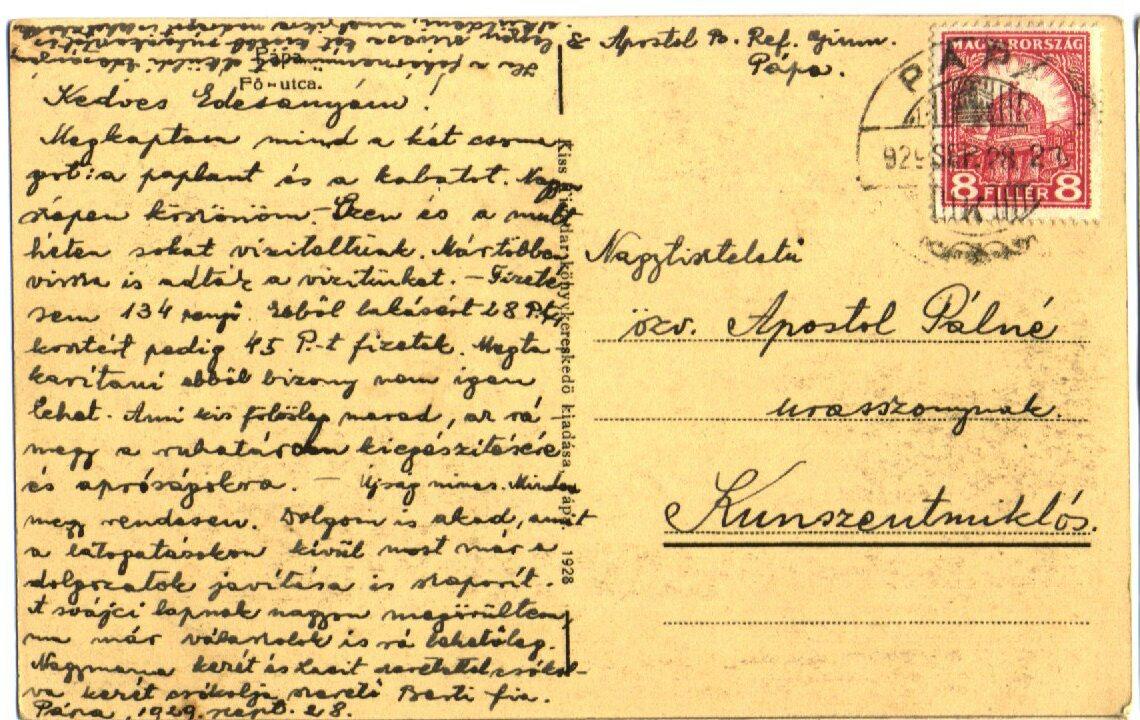 Fő-utca.
Kedves Édesanyám!
Megkaptam mind a két csoma-
got: a paplant és a kabátot. Nagyon
szépen köszönöm. – Ezen és a mult
héten sokat vizitáltunk. Már többen
vissza is adták a vizitünket. – Fizeté-
sem 134 pengő. Ebből lakásért 28 P-t,
kosztért pedig 45 P.-t fizetek. Megta-
karítani ebből bizony nem igen
lehet. Ami kis fölösleg marad, az rá-
megy a ruhatáram kiegészítésére
és apróságokra. – Újság nincs. Minden
megy rendesen. Dolgom is akad, amit
a látogatásokon kívül most már a
dolgozatok javítása is szaporít.
A svájci lapnak nagyon megörültem,
ma már válaszolok is rá lehetőleg.
Nagymama kezét és Lacit szeretettel csókol-
va kezét csókolja szerető Berti fia.
Pápa, 1929. szept. 28.
Kiss könyvkereskedő kiadása 1928
Apostol B. Ref. gimn.
Pápa.
MAGYARORSZÁG
8 FILLÉR 8
PÁPA
929 SEP. 28
Nagytiszteletű
özv. Apostol Pálné
urasszonynak.
Kunszentmiklós.